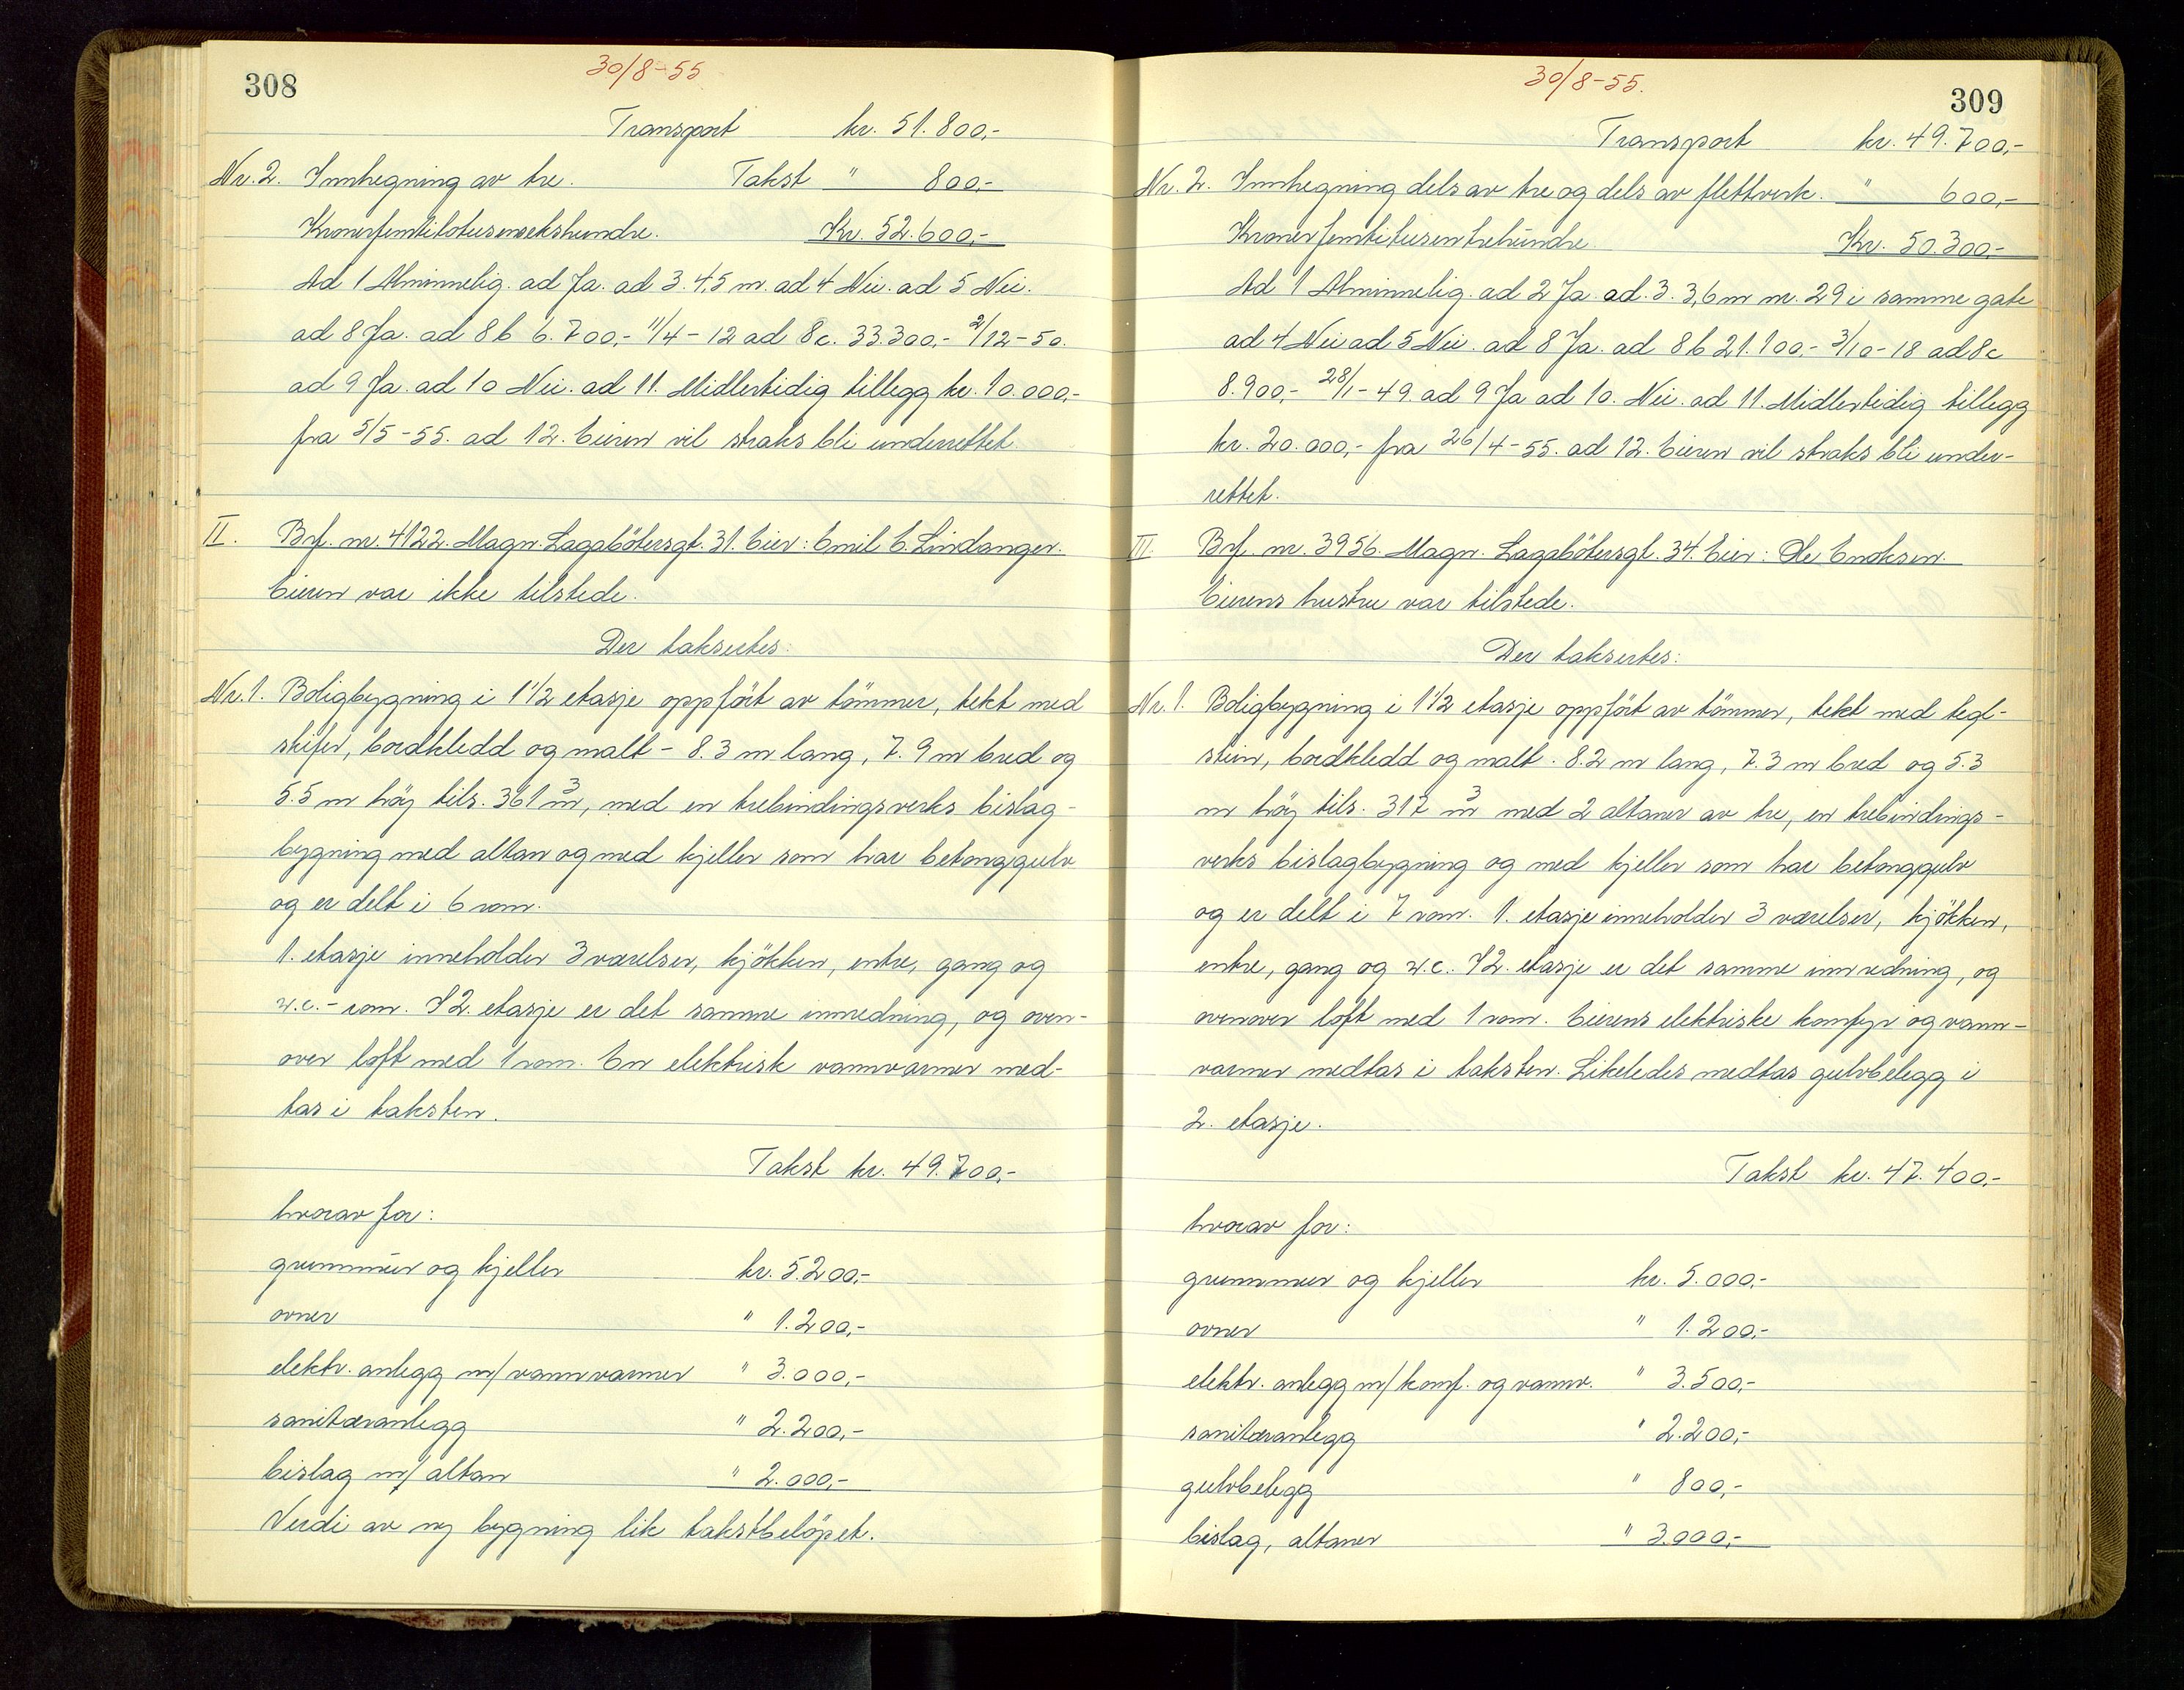 308
30/8-55
Transport kr. 51.800,-
Nr. 2. Innhegning av tre. Takst " 800,-
Kronerfemtitotusensekshundre. Kr. 52.600,-
Ad 1 Alminnelig. ad Ja. ad 3. 4,5 m. ad 4 Nei. ad 5 Nei.
ad 8 Ja. ad 8b 6.700,- 11/4-12 ad 8c. 33.300,- 2/12-50.
ad 9 Ja. ad 10 Nei. ad 11. Midlertidig tillegg kr. 10.000,-
fra 5/5-55. ad 12. Eieren vil straks bli underrettet.
II. Brf. nr. 4122. Magn. Lagabötersgt. 31. Eier: Emil E. Lindanger.
Eieren var ikke tilstede.
Der taksertes:
Nr. 1. Boligbygning i 1 1/2 etasje oppfört av tömmer, tekt med
skifer, bordkledd og malt - 8.3 m lang, 7.9 m bred og
5.5 m höy tils. 361 m3, med en trebindingsverks bislag-
bygning med altan og med kjeller som har betonggulv
og er delt i 6 rom.
1. etasje inneholder 3 værelser, kjökken, entre, gang og
w.c.-rom. I 2. etasje er det samme innredning, og oven-
over loft med 1 rom. En elektrisk vannvarmer med-
tas i taksten.
Takst kr. 49.700,-
hvorav for:
grunnmur og kjeller kr. 5.200,-
ovner " 1.200,-
elektr. anlegg m/ vannvarmer " 3.000,-
sanitæranlegg " 2.200,-
bislag m/ altan " 2.000,-
Verdi av ny bygning lik takstbelöpet.
30/8-55.
309
Transport kr. 49.700,-
Nr. 2. Innhegning dels av tre og dels av flettverk. " 600,-
Kronerfemtitusentrehundre Kr. 50.300,-
Ad 1 Alminnelig. ad 2 Ja. ad. 3. 3,6 m nr. 29 i samme gate
ad 4 Nei ad 5 Nei. ad 8 Ja. ad 8b 21.100.- 3/10-18 ad 8c
8.900,- 28/1-49. ad 9 Ja ad 10. Nei. ad 11. Midlertidig tillegg
kr. 20.000,- fra 26/4-55. ad 12. Eieren vil straks bli under-
rettet.
III. Brf. nr. 3956. Magn. Lagabötersgt. 34. Eier: Ole Enoksen.
Eierens hustru var tilstede.
Der taksertes:
Nr. 1. Boligbygning i 1 1/2 etasje oppfört av tömmer, tekt med tegl-
stein, bordkledd og malt. 8.2 m lang, 7.3 m bred og 5.3
m höy tils. 317 m3 med 2 altaner av tre, en trebindings-
verks bislagbygning og med kjeller som har betonggulv
og er delt i 7 rom. 1. etasje inneholder 3 værelser, kjökken,
entre, gang og w.c. I 2. etasje er det samme innredning, og
ovenover loft med 1 rom. Eierens elektriske komfyr og vann-
varmer medtas i taksten. Likeledes medtas gulvbelegg i
2. etasje.
Takst kr. 47.400,-
hvorav for:
grunnmur og kjeller kr. 5.000,-
ovner " 1.200,-
elektr. anlegg m/ komf. og vannv. " 3.500,-
sanitæranlegg " 2.200,-
gulvbelegg " 800,-
bislag, altaner " 3.000,-